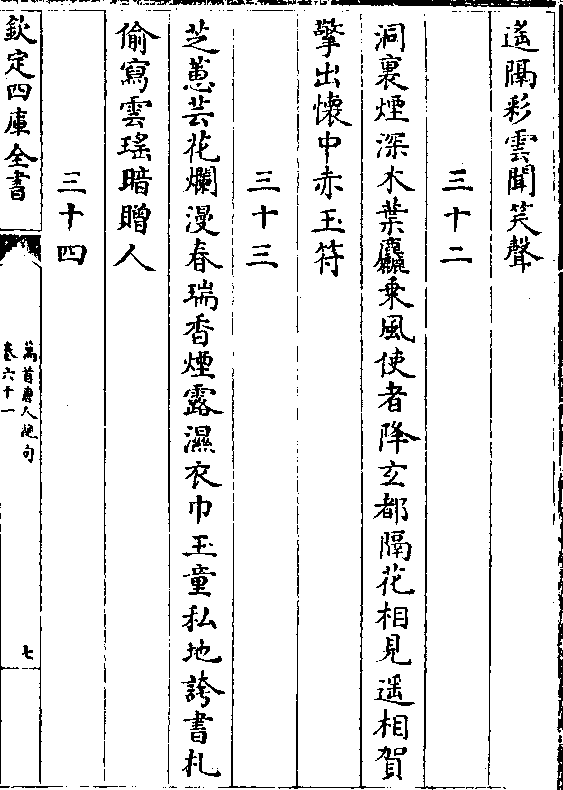 遙隔彩雲聞笑聲
三十二
洞裏煙深木葉麤乗風使者降玄都隔花相見遥相賀
擎出懷中赤玉符
三十三
芝蕙芸花爛漫春瑞香煙露濕衣巾玉童私地誇書札
偷寫雲瑤暗贈人
三十四
欽定四庫全書
萬首唐人絶句
卷六十一
七